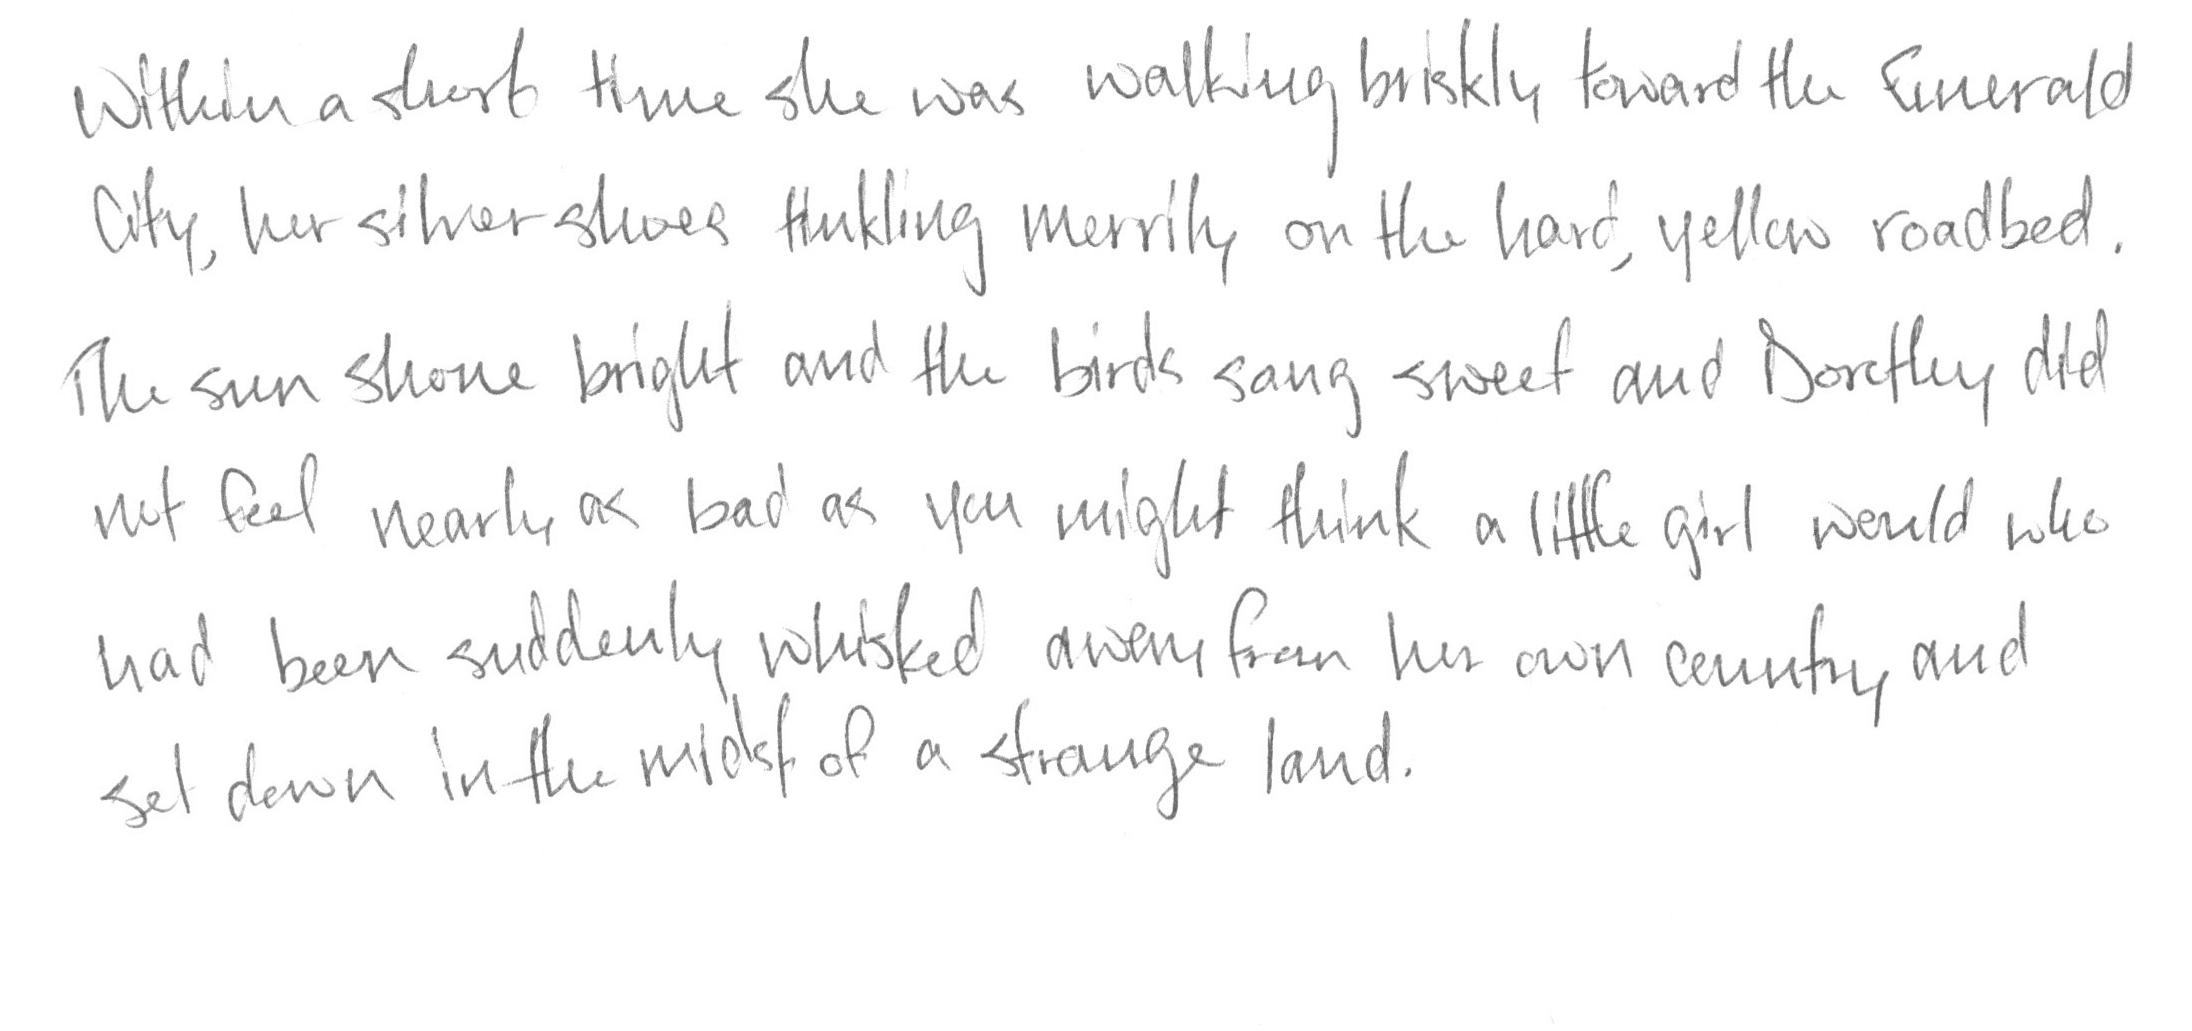 Within a short time she was walking briskly toward the Emerald
City, her silver shoes tinkling merrily on the hard, yellow roadbed.
The sun shone bright and the birds sang sweet and Dorothy did
not feel nearly as bad as you might think a little girl would who
had been suddenly whisked away from her own country and
set down in the midst of a strange land.